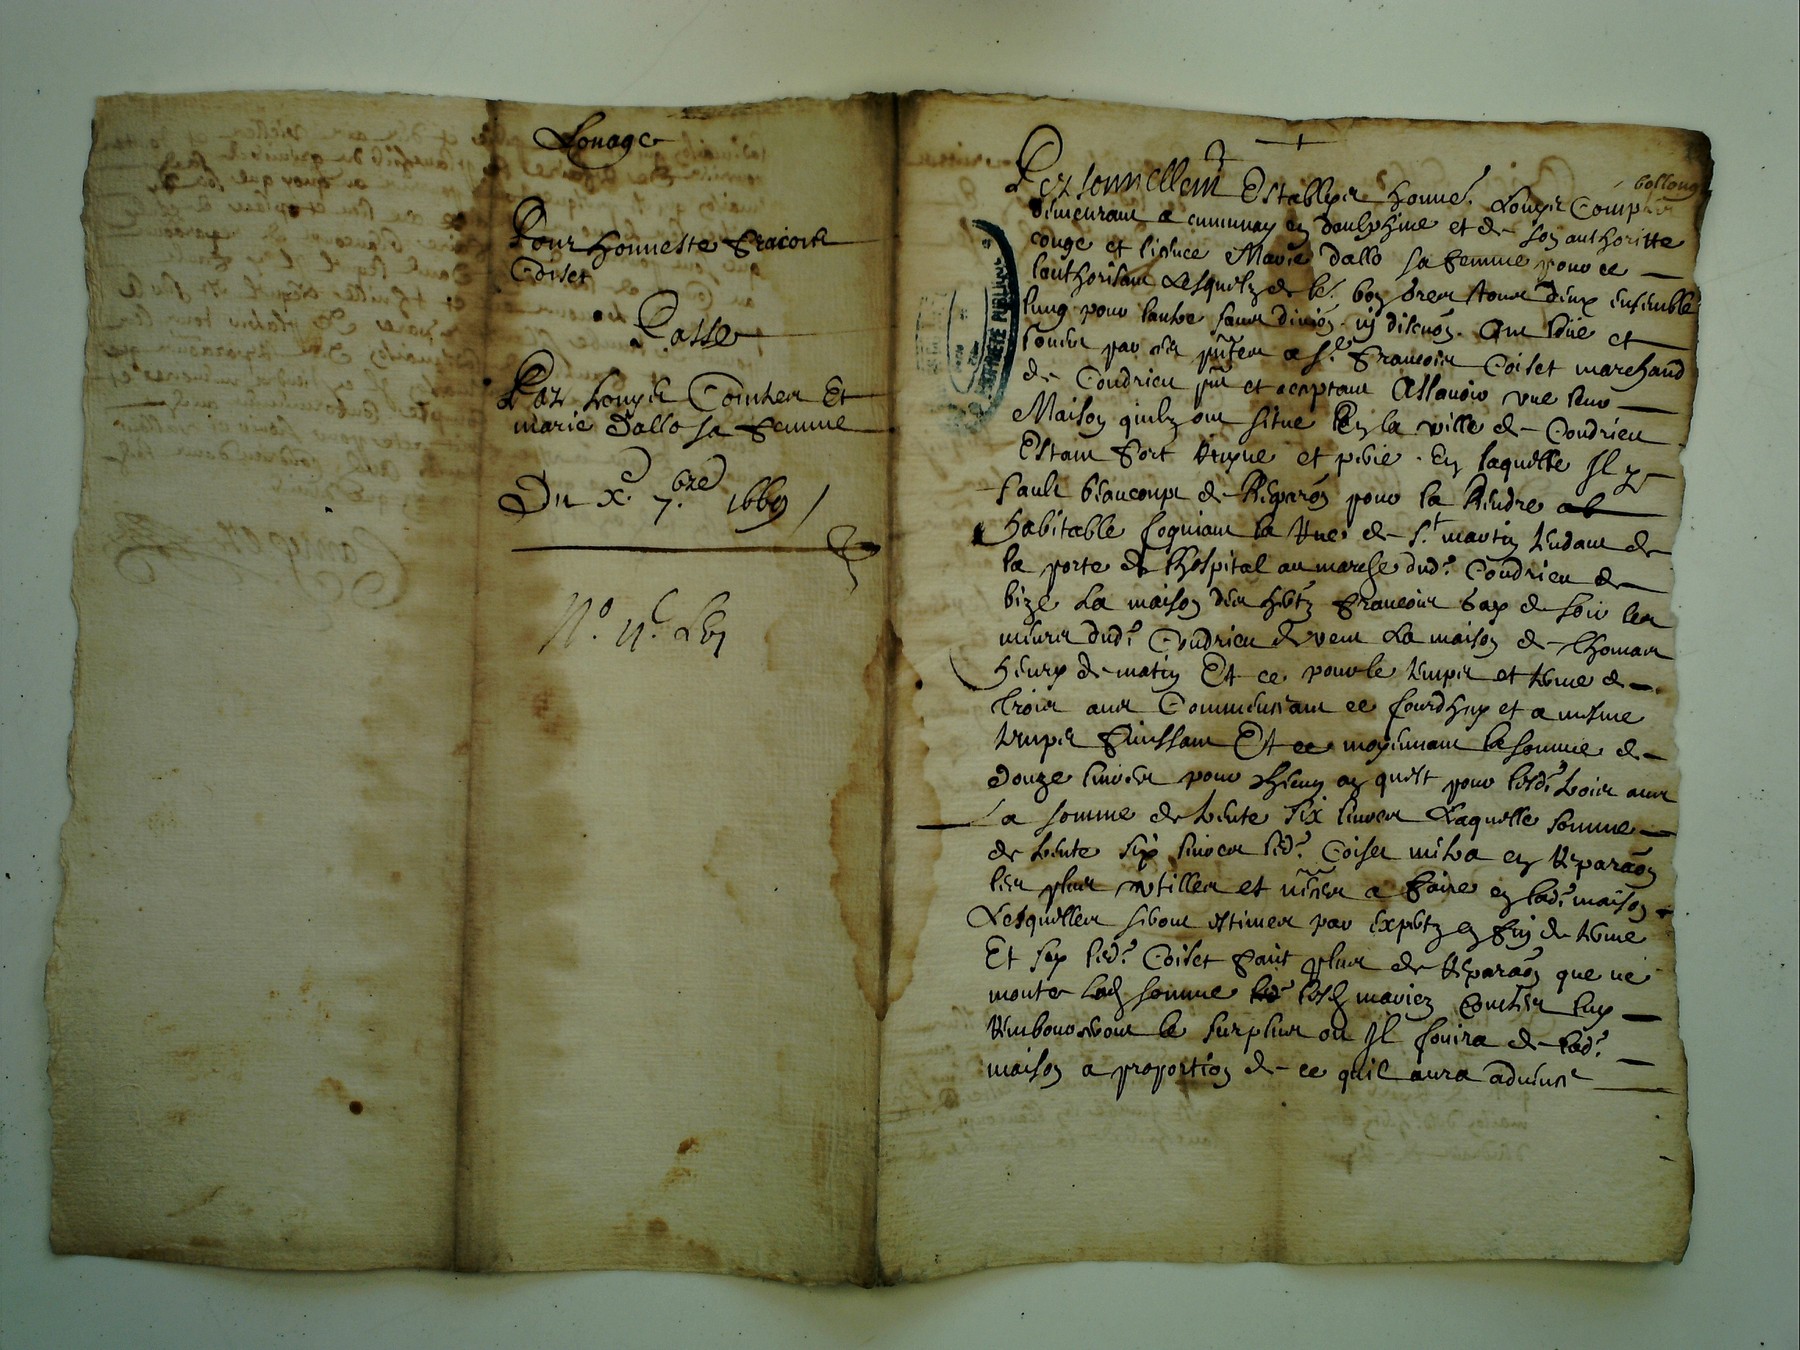 Louage
Pour honneste Francois
Coiset
Passe
Par Louys Combier Et
marie dallo sa femme
Du xe 7.bre 1669
Personnellemt Establys honne. Louys Combier
demeurant a communay en daulphine et de son authoritte
conge et licence Marie dallo sa femme pour ce
lauthorisant Lesquelz de le. bon grez tous deux ensemble
lung pour lautre sans divion. ny discuon. Ont loue et
louent par ces pntes a sr. Francois Coiset marchand
de Condrieu pnt et acceptant Assavoir une leur
Maison quilz ont situe En la ville de Condrieu
Estant fort ruyne et En laquelle Il y
fault beaucoup de Reparaon pour la Rendre
habitable joignant la rue de St martin tendant de
la porte de lhospital au marche dud. Condrieu de
bize La maison des hertz Francois de soir les
meurs dud. Condrieu de vent La maison de Thomas
Henry de matin Et ce pour le temps et terme de
trois ans Commensant ce jourdhuy et a mesme
temps finissant Et ce moyennant la somme de
douze livres pour chacun an quest pour lesd. trois ans
La somme de trente six livres Laquelle somme
de trente six livres led. Coiset metra en reparaon
les plus utilles et necres a faire en lad. maison
Lesquelles seront estimes par expertz en fin de terme
Et sy led. Coiset faict plus de reparaon que ne
monte lad somme lesd mariez Combier luy
rembourseront le surplus ou Il jouira de lad.
maison a proportion de ce quil aura advence